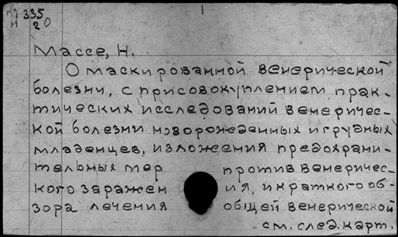 335
20
Массе, Н.
О маскированной венерической
болезни, с присовокуплением прак-
тических исследований венеричес-
кой болезни новорожденных и грудных
младенцев, изложения предохрани-
тельных мер против венеричес-
кого заражения, и краткого об-
зора лечения общей венерической
см. след. карт.